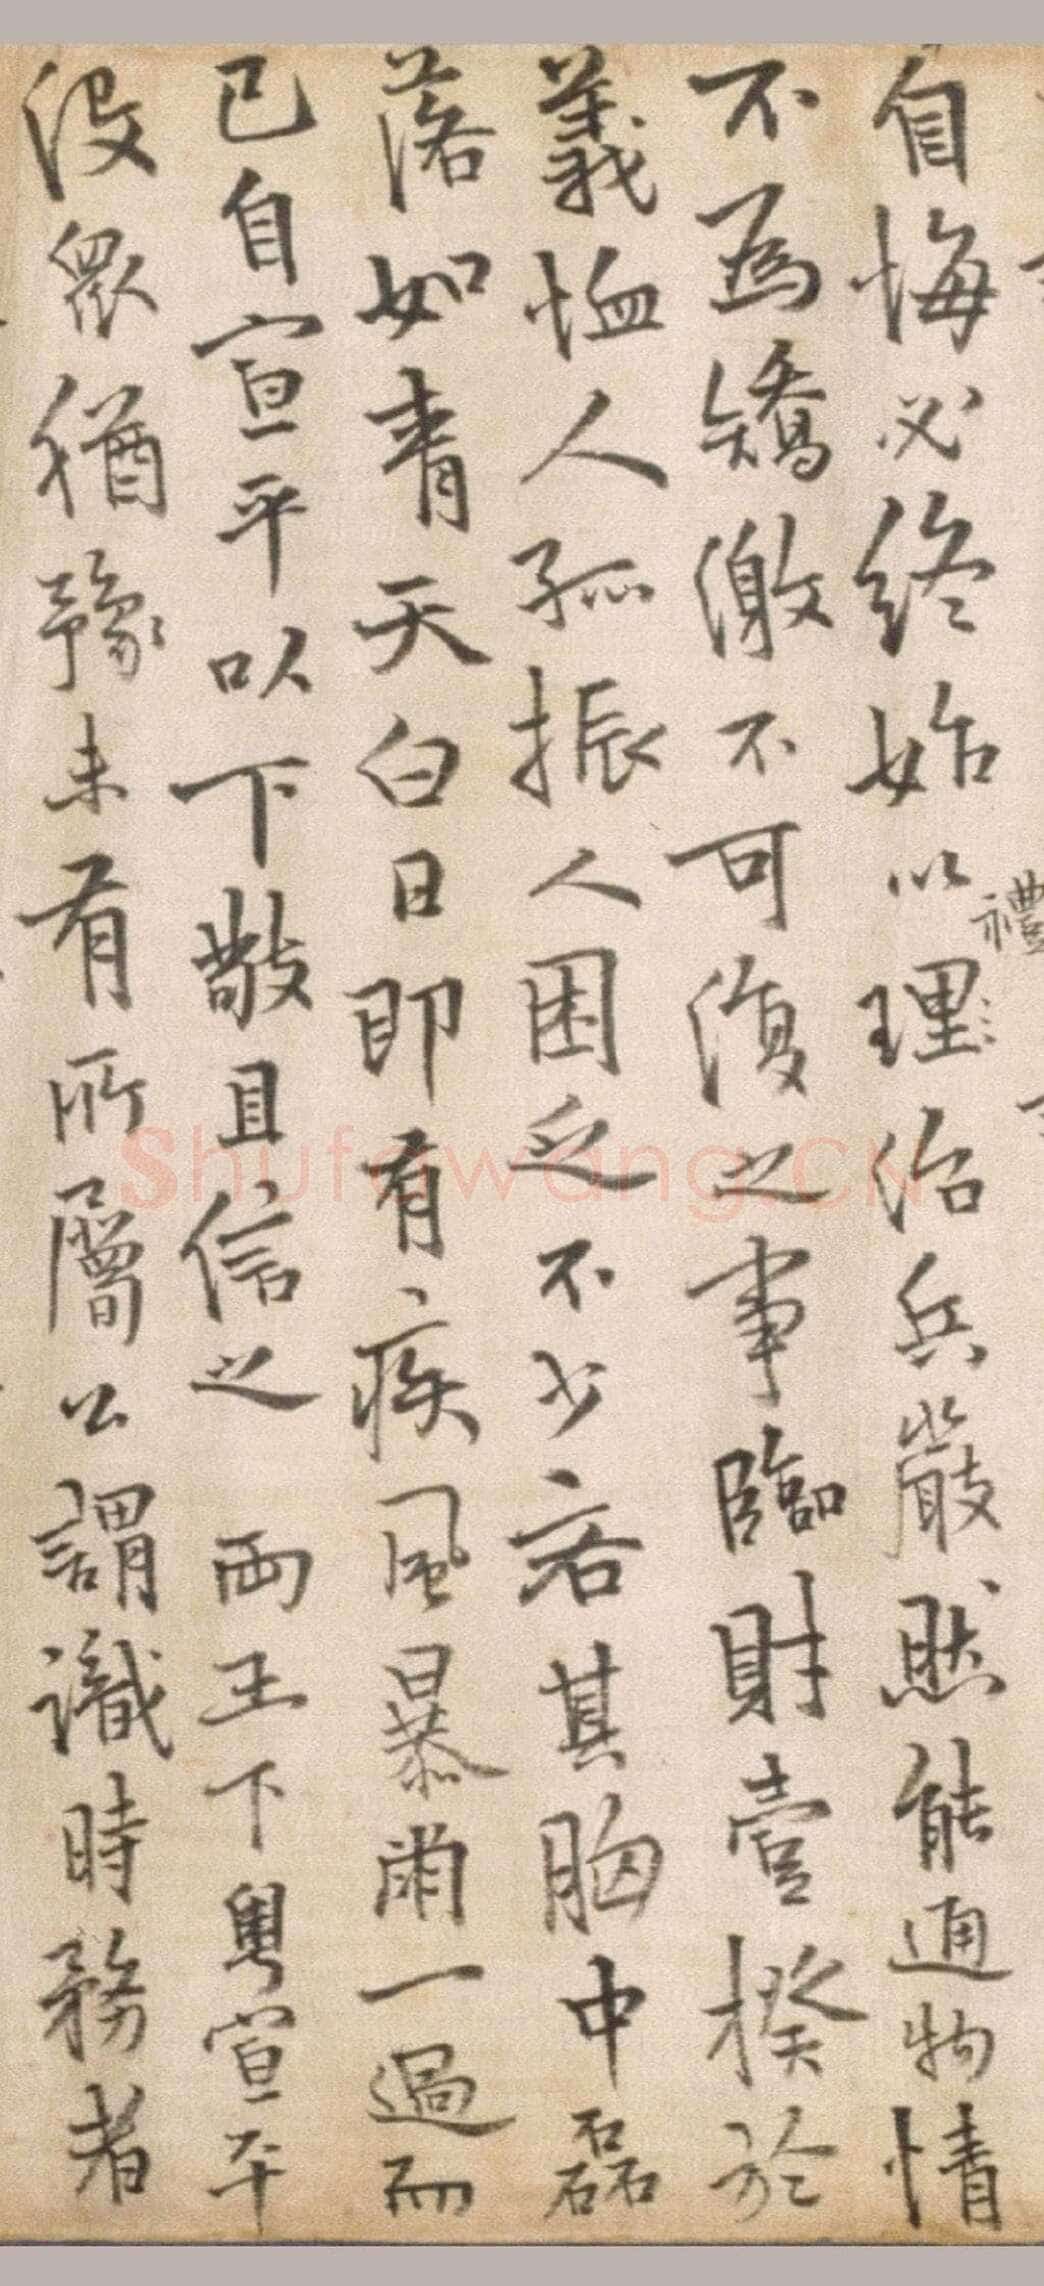 自悔必終始以理治兵嚴然能通物情
禮
不為矯激不可復之事臨財壹揆於
義恤人孤振人困乏不少吝其胸中磊
落如青天白日即有疾風暴雨一過而
已自宣平以下敬且信之 兩王下粵宣平
沒眾猶豫未有所屬公謂識時務者
Shufawang.CN